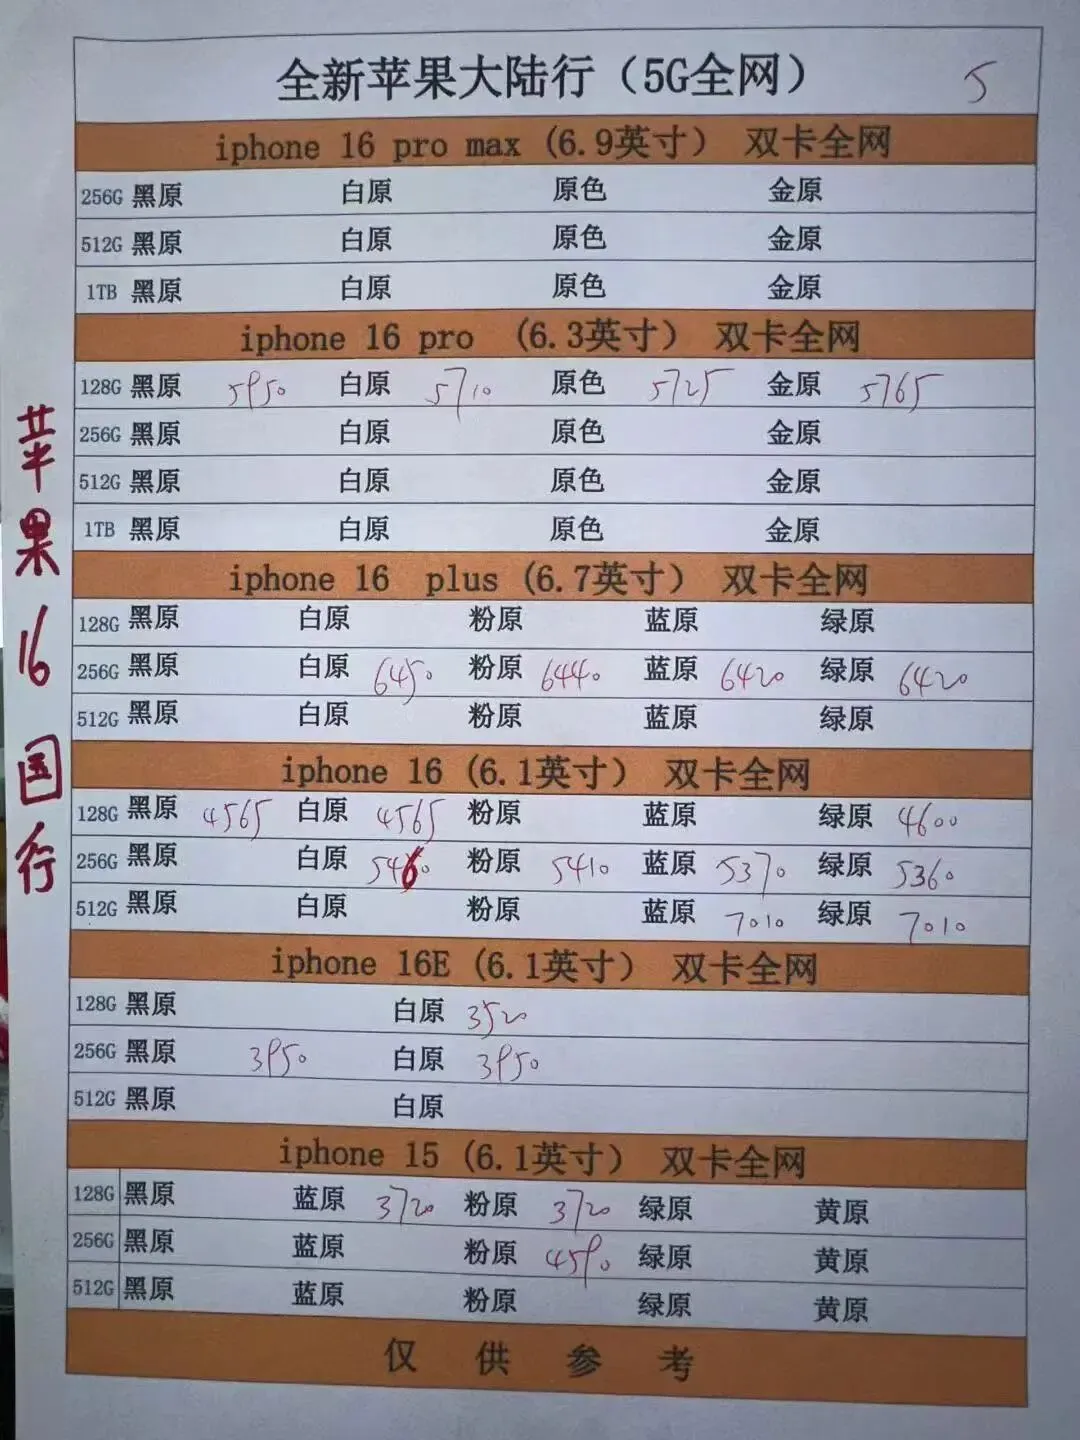 全新苹果大陆行（5G全网） 5
iphone 16 pro max (6.9英寸） 双卡全网
256G 黑原 白原 原色 金原
512G 黑原 白原 原色 金原
1TB 黑原 白原 原色 金原
iphone 16 pro （6.3英寸） 双卡全网
128G 黑原 5950 白原 5710 原色 5725 金原 5765
256G 黑原 白原 原色 金原
512G 黑原 白原 原色 金原
1TB 黑原 白原 原色 金原
iphone 16 plus (6.7英寸） 双卡全网
128G 黑原 白原 粉原 蓝原 绿原
256G 黑原 白原 6450 粉原 6440 蓝原 6420 绿原 6420
512G 黑原 白原 粉原 蓝原 绿原
iphone 16 (6.1英寸） 双卡全网
128G 黑原 4565 白原 4565 粉原 蓝原 绿原 4600
256G 黑原 白原 5460 粉原 5410 蓝原 5370 绿原 5360
512G 黑原 白原 粉原 蓝原 7010 绿原 7010
iphone 16E (6.1英寸） 双卡全网
128G 黑原 白原 3520
256G 黑原 3950 白原 3950
512G 黑原 白原
iphone 15 (6.1英寸） 双卡全网
128G 黑原 蓝原 3720 粉原 3720 绿原 黄原
256G 黑原 蓝原 粉原 4590 绿原 黄原
512G 黑原 蓝原 粉原 绿原 黄原
仅供参考
苹果16国行